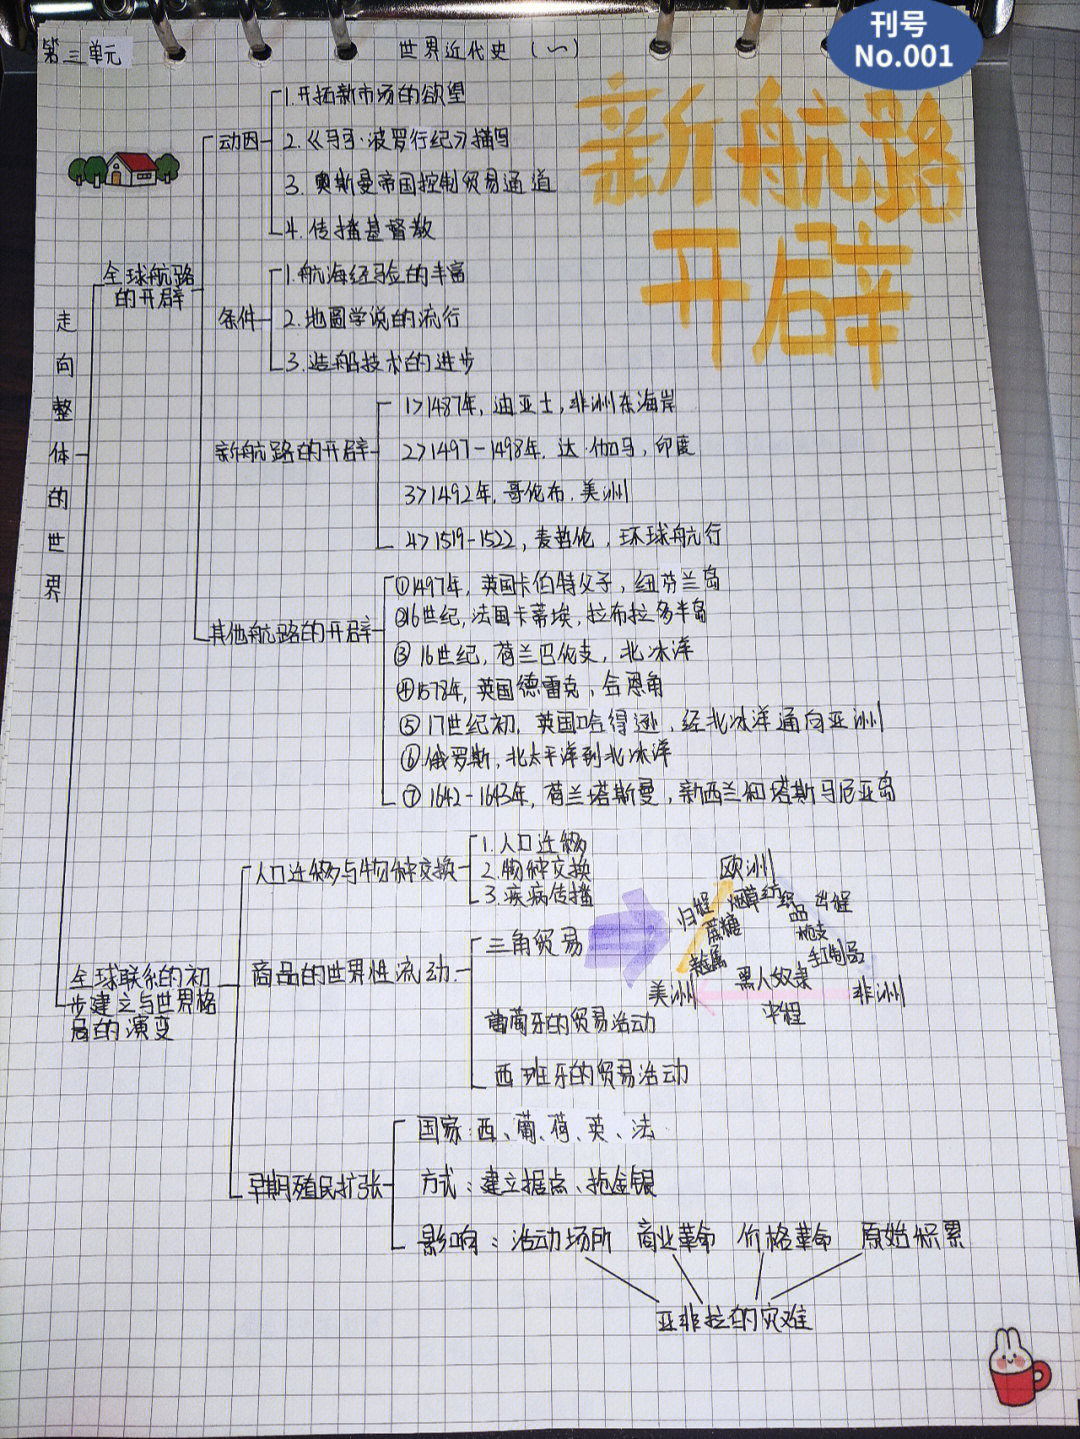 刊号
No.001
第三单元
世界近代史（一）
新航路
开辟
走向整体的世界
全球航路
的开辟
动因
1.开拓新市场的欲望
2.《马可·波罗行纪》描写
3.奥斯曼帝国控制贸易通道
4.传播基督教
条件
1.航海经验的丰富
2.地圆学说的流行
3.造船技术的进步
新航路的开辟
1>1487年,迪亚士,非洲东海岸
2>1497-1498年.达·伽马,印度
3>1492年,哥伦布.美洲
4>1519-1522,麦哲伦,环球航行
其他航路的开辟
①1497年,英国卡伯特父子,纽芬兰岛
②16世纪,法国卡蒂埃,拉布拉多半岛
③16世纪,荷兰巴伦支,北冰洋
④1578年,英国德雷克,合恩角
⑤17世纪初,英国哈得逊,经北冰洋通向亚洲
⑥俄罗斯,北太平洋到北冰洋
⑦1642-1643年,荷兰塔斯曼,新西兰和塔斯马尼亚岛
全球联系的初
步建立与世界格
局的演变
人口迁移与物种交换
1.人口迁移
2.物种交换
3.疾病传播
商品的世界性流动
三角贸易
葡萄牙的贸易活动
西班牙的贸易活动
欧洲
归程
烟草
蔗糖
出程
纺织品
枪支
手工制品
美洲
黑人奴隶
中程
非洲
早期殖民扩张
国家:西、葡、荷、英、法
方式:建立据点、抢金银
影响:活动场所 商业革命 价格革命 原始积累
亚非拉的灾难